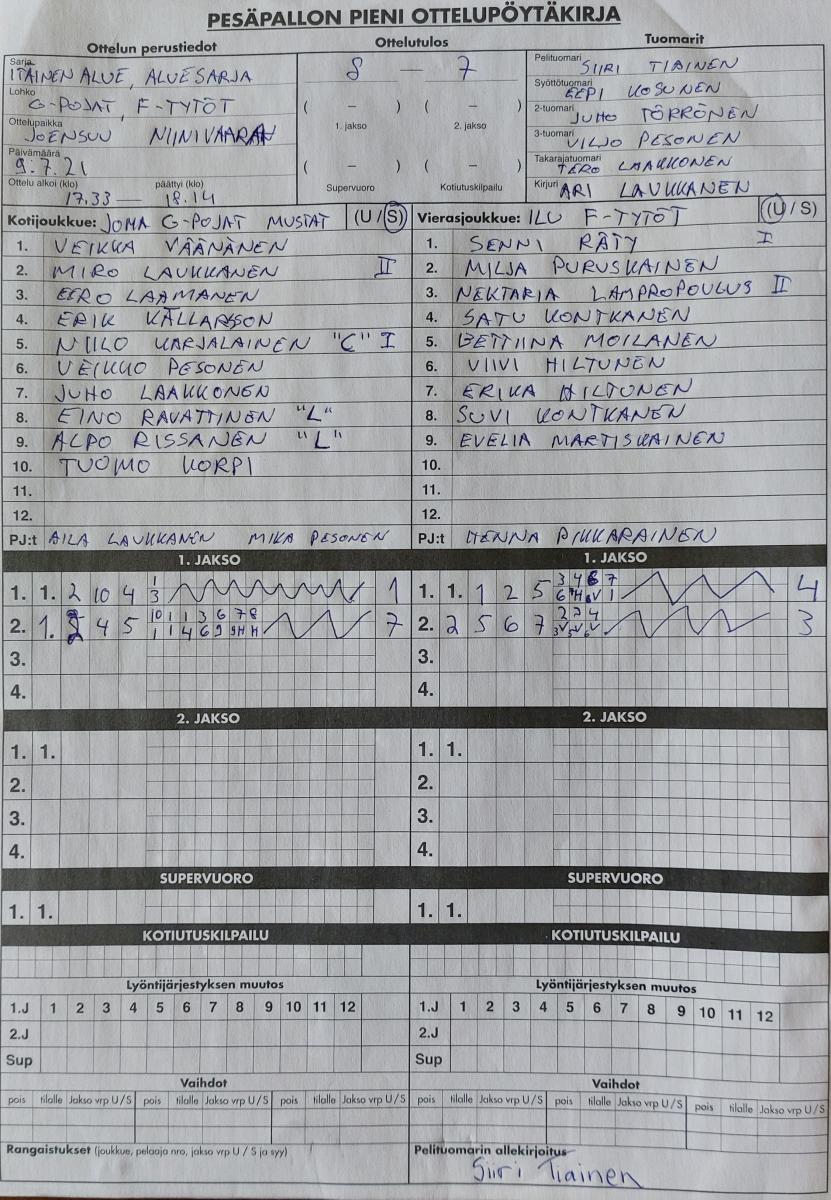 PESÄPALLON PIENI OTTELUPÖYTÄKIRJA
Ottelun perustiedot
Ottelutulos
Tuomarit
Sarja
ITÄINEN ALUE, ALUESARJA
Lohko
G-POJAT, F-TYTÖT
Ottelupaikka
JOENSUU NIINIVAARA
Päivämäärä
9.7.21
Ottelu alkoi (klo) päättyi (klo)
17.33 — 18.14
8 — 7
( – ) ( – )
1. jakso 2. jakso
( – ) ( – )
Supervuoro Kotiutuskilpailu
Pelituomari SIIRI TIAINEN
Syöttötuomari EEPI KOSUNEN
2-tuomari JUHO TÖRRÖNEN
3-tuomari VILJO PESONEN
Takarajatuomari TERO LAAKKONEN
Kirjuri ARI LAUKKANEN
Kotijoukkue: JOMA G-POJAT MUSTAT (U / S)
1. VEIKKA VÄÄNÄNEN
2. MIRO LAUKKANEN II
3. EERO LAAMANEN
4. ERIK KÄLLARSSON
5. NIILO KARJALAINEN "C" I
6. VEIKKO PESONEN
7. JUHO LAAKKONEN
8. EINO RAVATTINEN "L"
9. ALPO RISSANEN "L"
10. TUOMO KORPI
11.
12.
PJ:t AILA LAUKKANEN MIKA PESONEN
Vierasjoukkue: ILU F-TYTÖT (U / S)
1. SENNI RÄTY I
2. MILJA PURUSKAINEN
3. NEKTARIA LAMPROPOULUS II
4. SATU KONTKANEN
5. BETTIINA MOILANEN
6. VIIVI HILTUNEN
7. ERIKA HILTUNEN
8. SUVI KONTKANEN
9. EVELIA MARTISKAINEN
10.
11.
12.
PJ:t HENNA PIKKARAINEN
1. JAKSO
1. 1. 2 10 4 1 1
3
2. 1. 2 4 5 10 1 1 3 6 7 8 7
1 1 4 6 9 9 H H
3.
4.
1. JAKSO
1. 1. 1 2 5 3 4 6 7 4
2. 2 5 6 7 2 2 4 3
3.
4.
2. JAKSO
1. 1.
2.
3.
4.
2. JAKSO
1. 1.
2.
3.
4.
SUPERVUORO
1. 1.
SUPERVUORO
1. 1.
KOTIUTUSKILPAILU
KOTIUTUSKILPAILU
Lyöntijärjestyksen muutos
1.J 1 2 3 4 5 6 7 8 9 10 11 12
2.J
Sup
Lyöntijärjestyksen muutos
1.J 1 2 3 4 5 6 7 8 9 10 11 12
2.J
Sup
Vaihdot
pois tilalle Jakso vrp U / S pois tilalle Jakso vrp U / S pois tilalle Jakso vrp U / S
Vaihdot
pois tilalle Jakso vrp U / S pois tilalle Jakso vrp U / S pois tilalle Jakso vrp U / S
Rangaistukset (joukkue, pelaaja nro, jakso vrp U / S ja syy)
Pelituomarin allekirjoitus
Siiri Tiainen